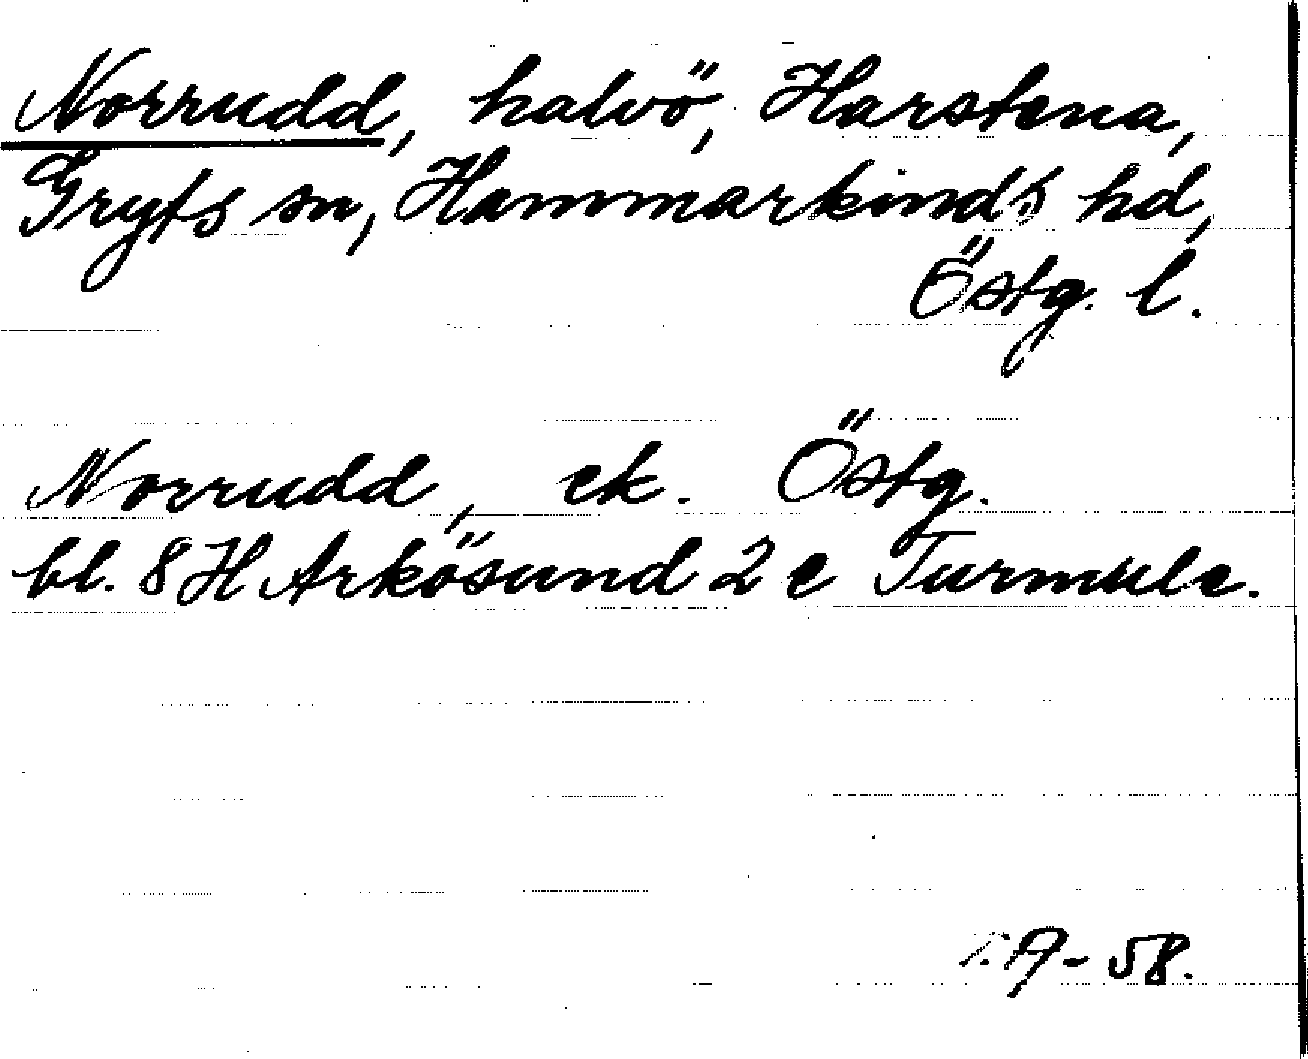 Norrudd, halvö, Harstena,
Gryts sn, Hammarkinds hd,
Östg. l.
Norrudd, ek. Östg.
bl. 8 H Arkösund 2 e Turmule.
A - 58.